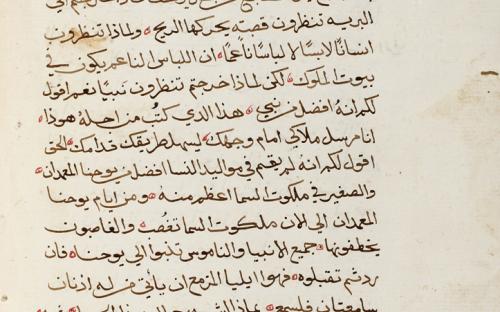 البريه تنظرون قصبه يحركها الريح ولماذا تنظرون
انسانًا لابسًا لباسًا ناعمًا ان اللباس الناعم يكون في
بيوت الملوك لكن لماذا خرجتم تنظرون نبيًا نعم اقول
لكم انه افضل من نبي هذا الذي كتب من اجله هوذا
انا مرسل ملاكي امام وجهك ليسهل طريقك قدامك الحق
اقول لكم انه لم يقم في مواليد النسا افضل من يوحنا المعمدان
والصغير في ملكوت السما اعظم منه ومن ايام يوحنا
المعمدان الي الان ملكوت السما تغصب والغاصبون
يخطفونها جميع الانبيا والناموس تنبوا الي يوحنا فان
ردتم تقبلوه فهوا ايليا المزمع ان ياتي من له اذنان
سامعتان فليسمع